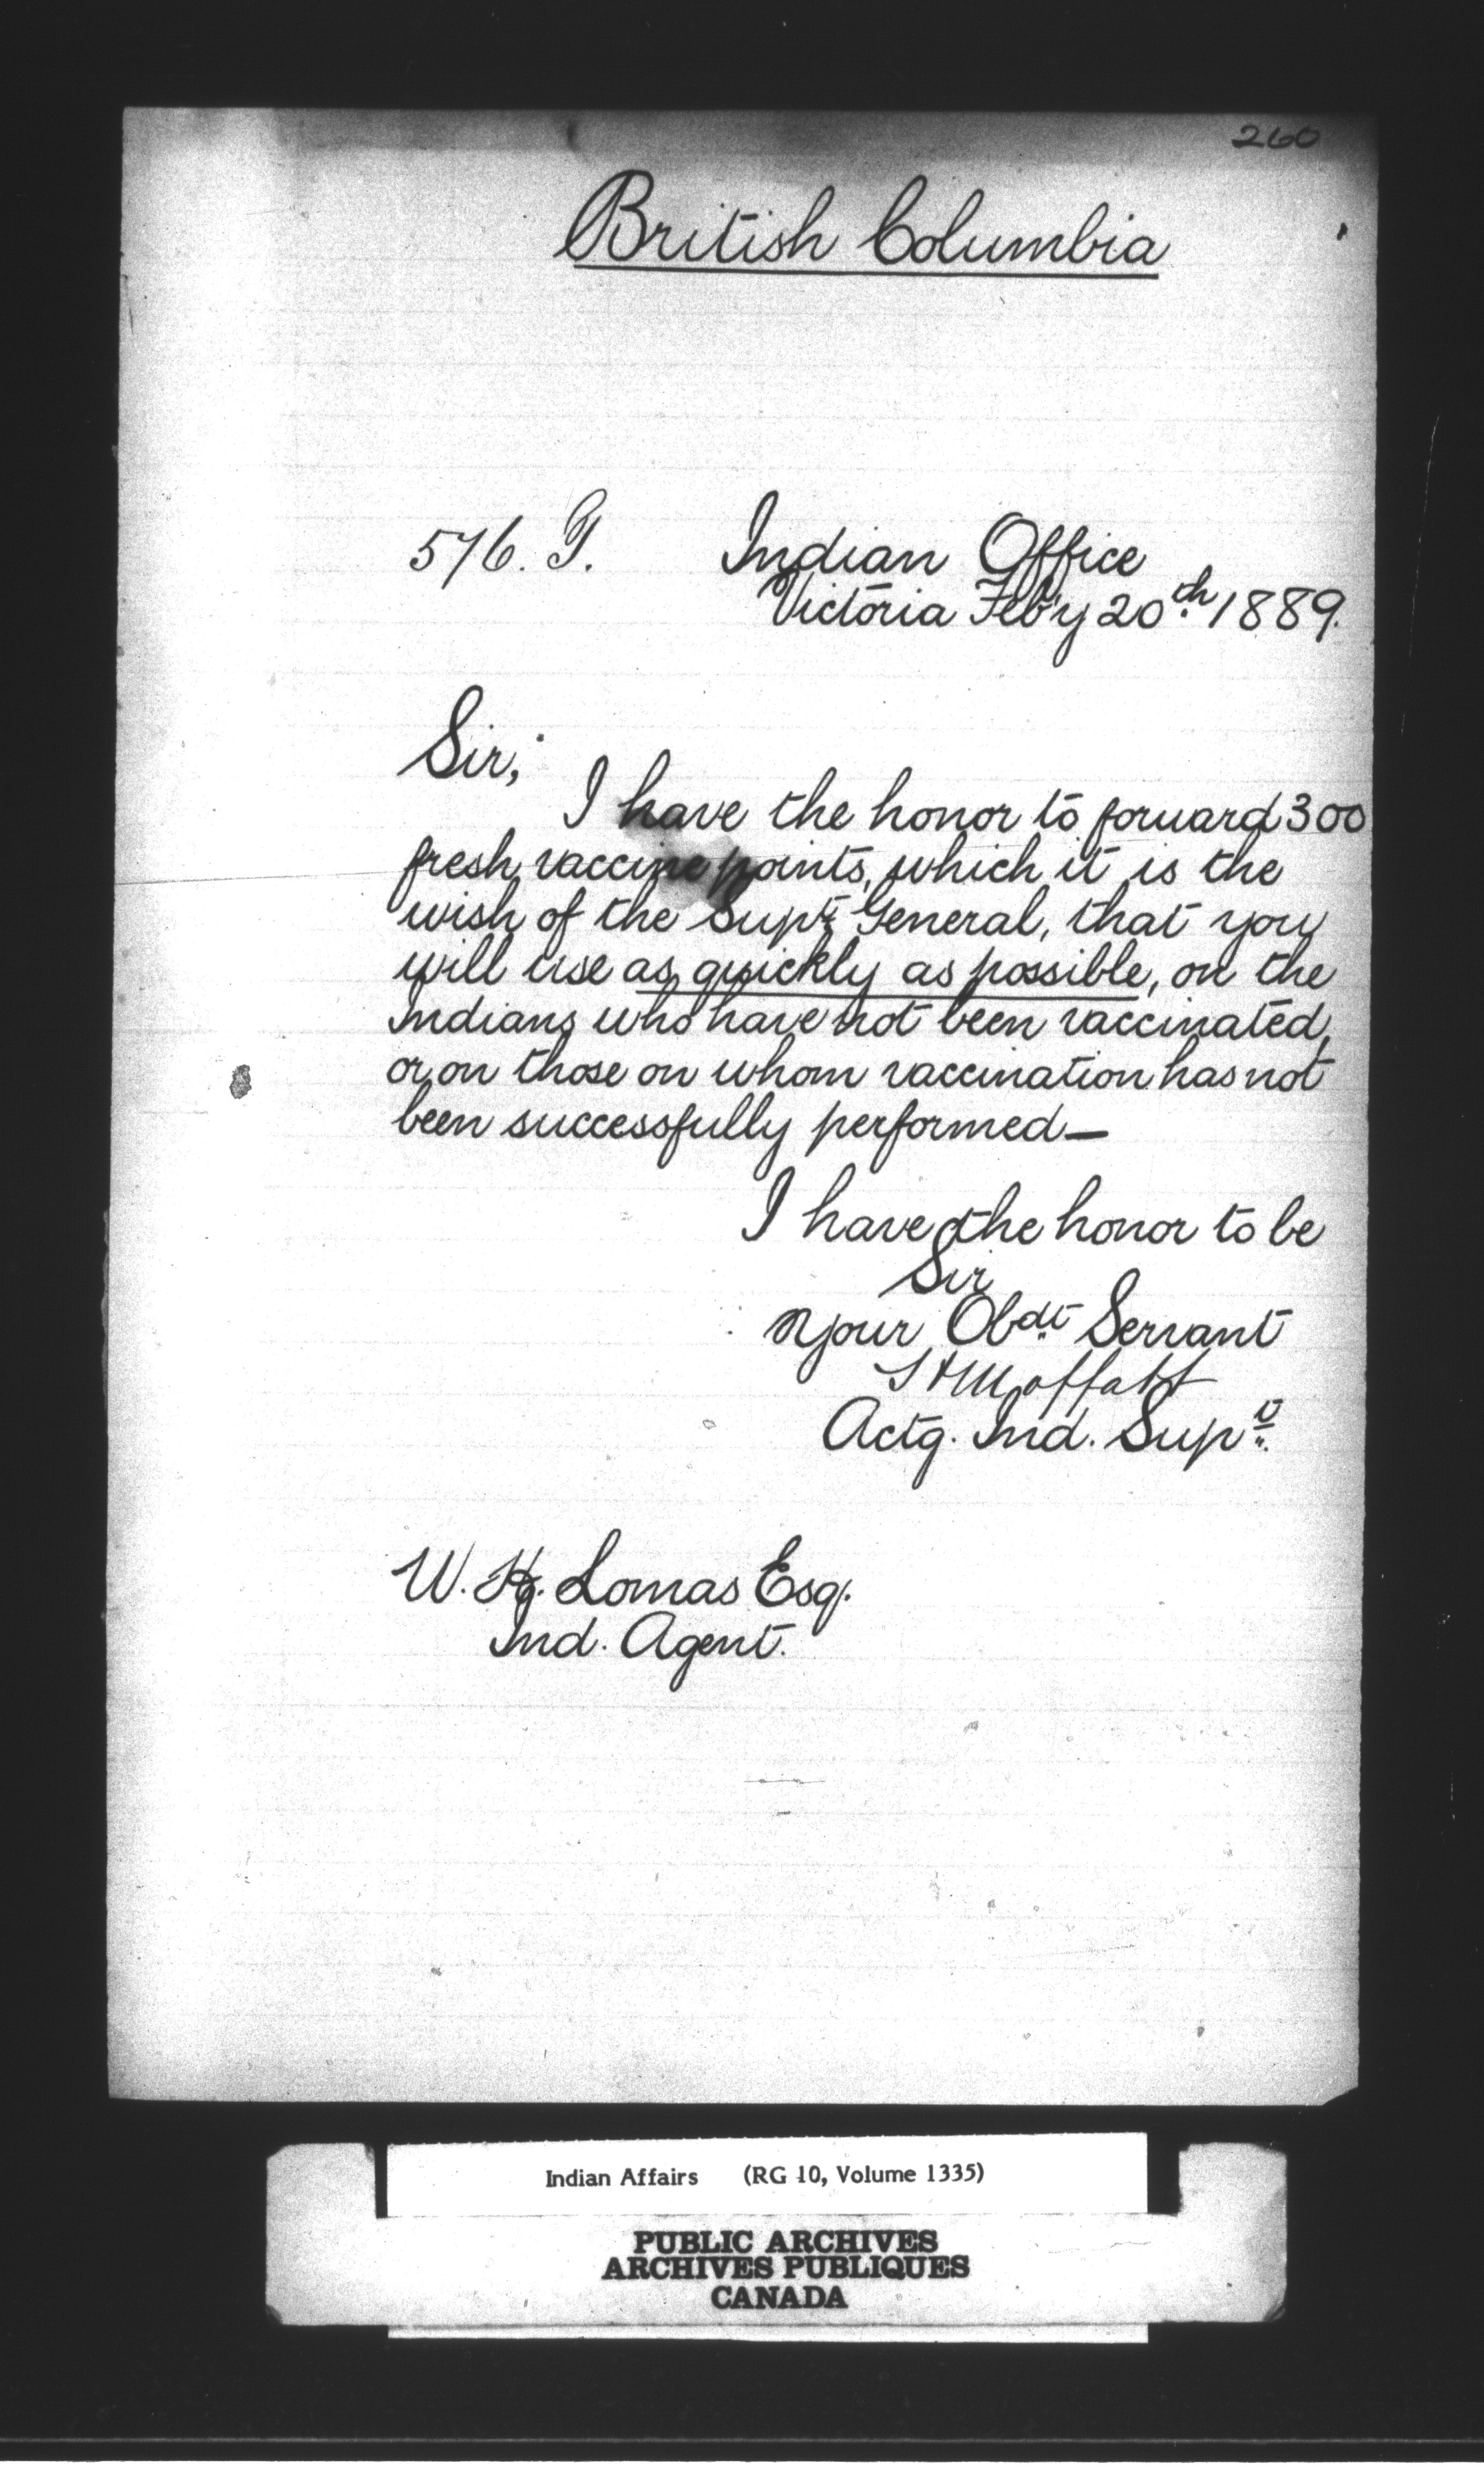 260
British Columbia
576. G. Indian Office
Victoria Feb'y 20th 1889.
Sir;
I have the honor to forward 300
fresh vaccine points, which it is the
wish of the Supt. General, that you
will use as quickly as possible, on the
Indians who have not been vaccinated,
or on those on whom vaccination has not
been successfully performed—
I have the honor to be
Sir
Your Obdt Servant
Moffatt
Actg. Ind. Supt.
W. H. Lomas Esq.
Ind. Agent.
Indian Affairs (RG 10, Volume 1335)
PUBLIC ARCHIVES
ARCHIVES PUBLIQUES
CANADA